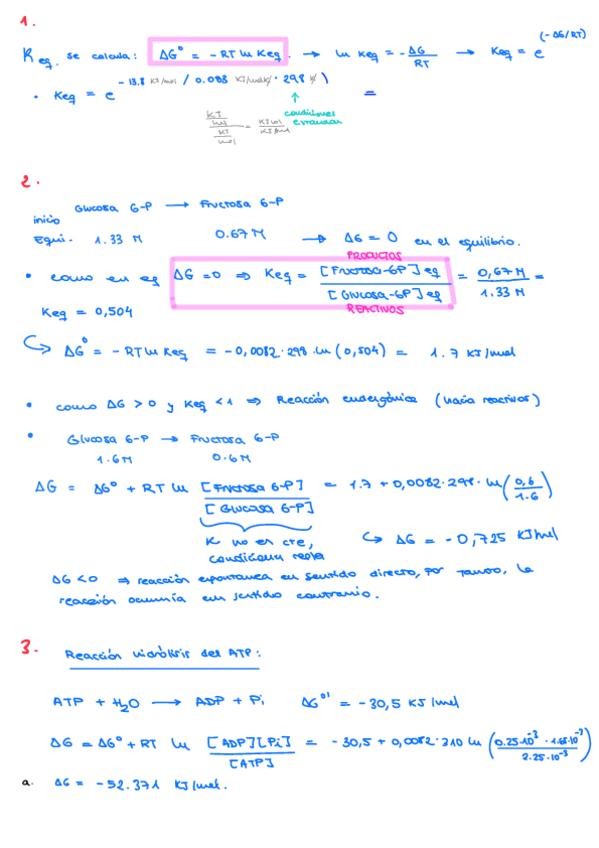 1.
(-ΔG/RT)
Keq. se calcula: ΔG° = -RT ln Keq. → ln Keq = -ΔG/RT → Keq = e
• Keq = e -13.8 KJ/mol / 0.083 · 298 ) =
condiciones
estandar
2.
Glucosa 6-P → Fructosa 6-P
inicio
Equi. 1.33 M 0.67 M → ΔG = 0 en el equilibrio.
PRODUCTOS
• como en eq ΔG = 0 ⇒ Keq = [Fructosa-6P]eq / [Glucosa-6P]eq = 0,67 M / 1.33 M =
REACTIVOS
Keq = 0,504
↪ ΔG° = -RT ln Keq = -0,0082·298·ln(0,504) = 1.7 KJ/mol
• como ΔG > 0 y Keq < 1 ⇒ Reacción endergónica (hacia reactivos)
• Glucosa 6-P → Fructosa 6-P
1.6M 0.6M
ΔG = ΔG° + RT ln [Fructosa 6-P] / [Glucosa 6-P] = 1.7 + 0,0082·298·ln(0,6/1.6)
K no es cte, ↪ ΔG = -0,725 KJ/mol
ΔG<0 ⇒ reacción espontanea en sentido directo, por tanto, la
reacción ocurriría en sentido contrario.
3. Reacción hidrólisis del ATP:
ATP + H₂O → ADP + Pi ΔG°' = -30,5 KJ/mol
ΔG = ΔG° + RT ln [ADP][Pi] / [ATP] = -30,5 + 0,0082·310 ln (0.25·10⁻³ · 1.65·10⁻³ / 2.25·10⁻³)
a. ΔG = -52.371 KJ/mol.